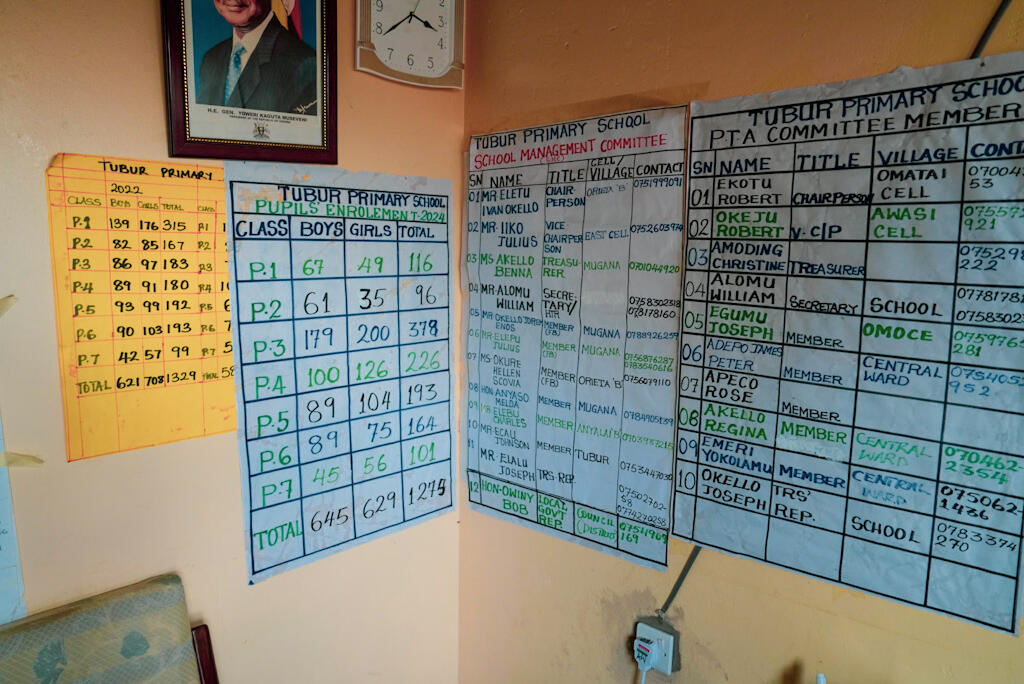 H.E. GEN. YOWERI KAGUTA MUSEVENI
PRESIDENT OF THE REPUBLIC OF UGANDA
3
4
5
6
7
8
TUBUR PRIMARY
2022
CLASS BOYS GIRLS TOTAL CLASS
P.1 139 176 315 P.1
P.2 82 85 167 P.2
P.3 86 97 183 P.3
P.4 89 91 180 P.4
P.5 93 99 192 P.5
P.6 90 103 193 P.6
P.7 42 57 99 P.7
TOTAL 621 708 1329 TOTAL 58
TUBUR PRIMARY SCHOOL
PUPILS ENROLEMENT-2024
CLASS BOYS GIRLS TOTAL
P.1 67 49 116
P.2 61 35 96
P.3 179 200 379
P.4 100 126 226
P.5 89 104 193
P.6 89 75 164
P.7 45 56 101
TOTAL 645 629 1275
TUBUR PRIMARY SCHOOL
SCHOOL MANAGEMENT COMMITTEE
SN NAME TITLE CELL/VILLAGE CONTACT
01 MR ELETU IVAN OKELLO CHAIRPERSON ORIETA 'B' 0751999091
02 MR. IIKO JULIUS VICE CHAIRPERSON EAST CELL 0752603974
03 MS AKELLO BENNA TREASURER MUGANA 0701044920
04 MR. ALOMU WILLIAM SECRETARY/HTR 0758302318 / 0778178160
05 MR OKELLO ENOS MEMBER (FB) MUGANA 0788926259
06 MR ELEPU JULIUS MEMBER (FB) MUGANA 0756876287 0783540616
07 MS. OKURE HELLEN SCOVIA MEMBER (FB) ORIETA 'B' 0756079110
08 HON. ANYASO MELDA MEMBER MUGANA 0784905139
09 MR ELEBU CHARLES MEMBER ANYALAI 0703983215
10 MR. ECAU JOHNSON MEMBER TUBUR 0753447030
11 MR. ELALU JOSEPH TRS-REP. 0750270258 0774270258
12 HON-OWINY BOB LOCAL GOVT REP. COUNCIL (DISTRICT) 169
TUBUR PRIMARY SCHOO
P.T.A COMMITTEE MEMBER
SN NAME TITLE VILLAGE CONTA
01 EKOTU ROBERT CHAIRPERSON OMATAI CELL 07004 53
02 OKEJU ROBERT V. C/P AWASI CELL 07557 921
03 AMODING CHRISTINE TREASURER 07529 222
04 ALOMU WILLIAM SECRETARY SCHOOL 07781781 0758302
05 EGUMU JOSEPH MEMBER OMOCE 0759765 281
06 ADEPO JAMES PETER MEMBER CENTRAL WARD 0754052 952
07 APECO ROSE MEMBER
08 AKELLO REGINA MEMBER CENTRAL WARD 070462-2354
09 EMERI YOKOLAMU MEMBER CENTRAL WARD 075062-1436
10 OKELLO JOSEPH TRS' REP. SCHOOL 0783374 270